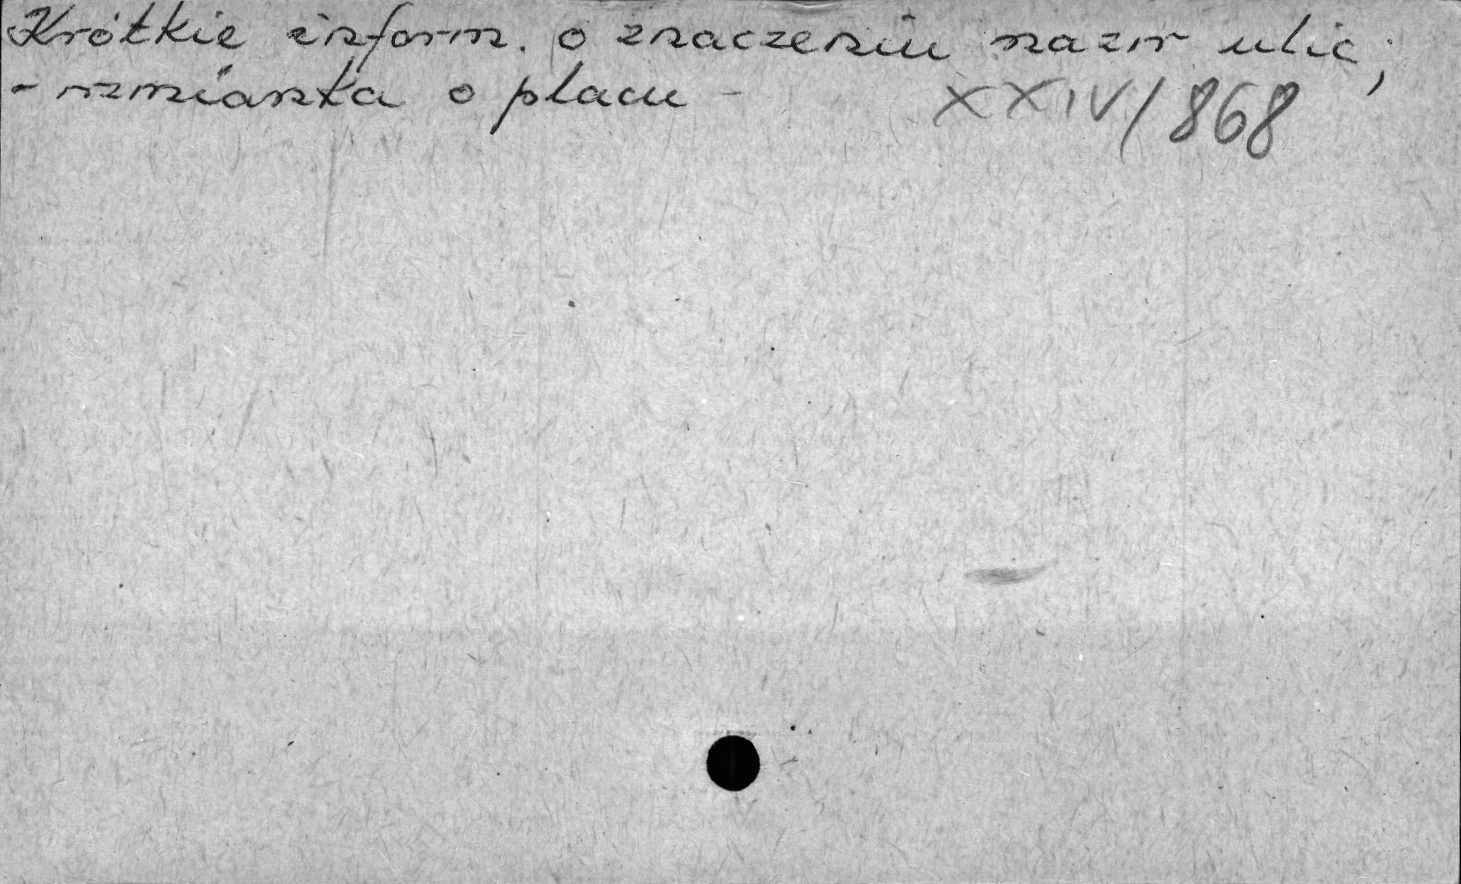 Krótkie inform. o znaczeniu nazw ulic;
- wzmianka o placu - XXIV/868